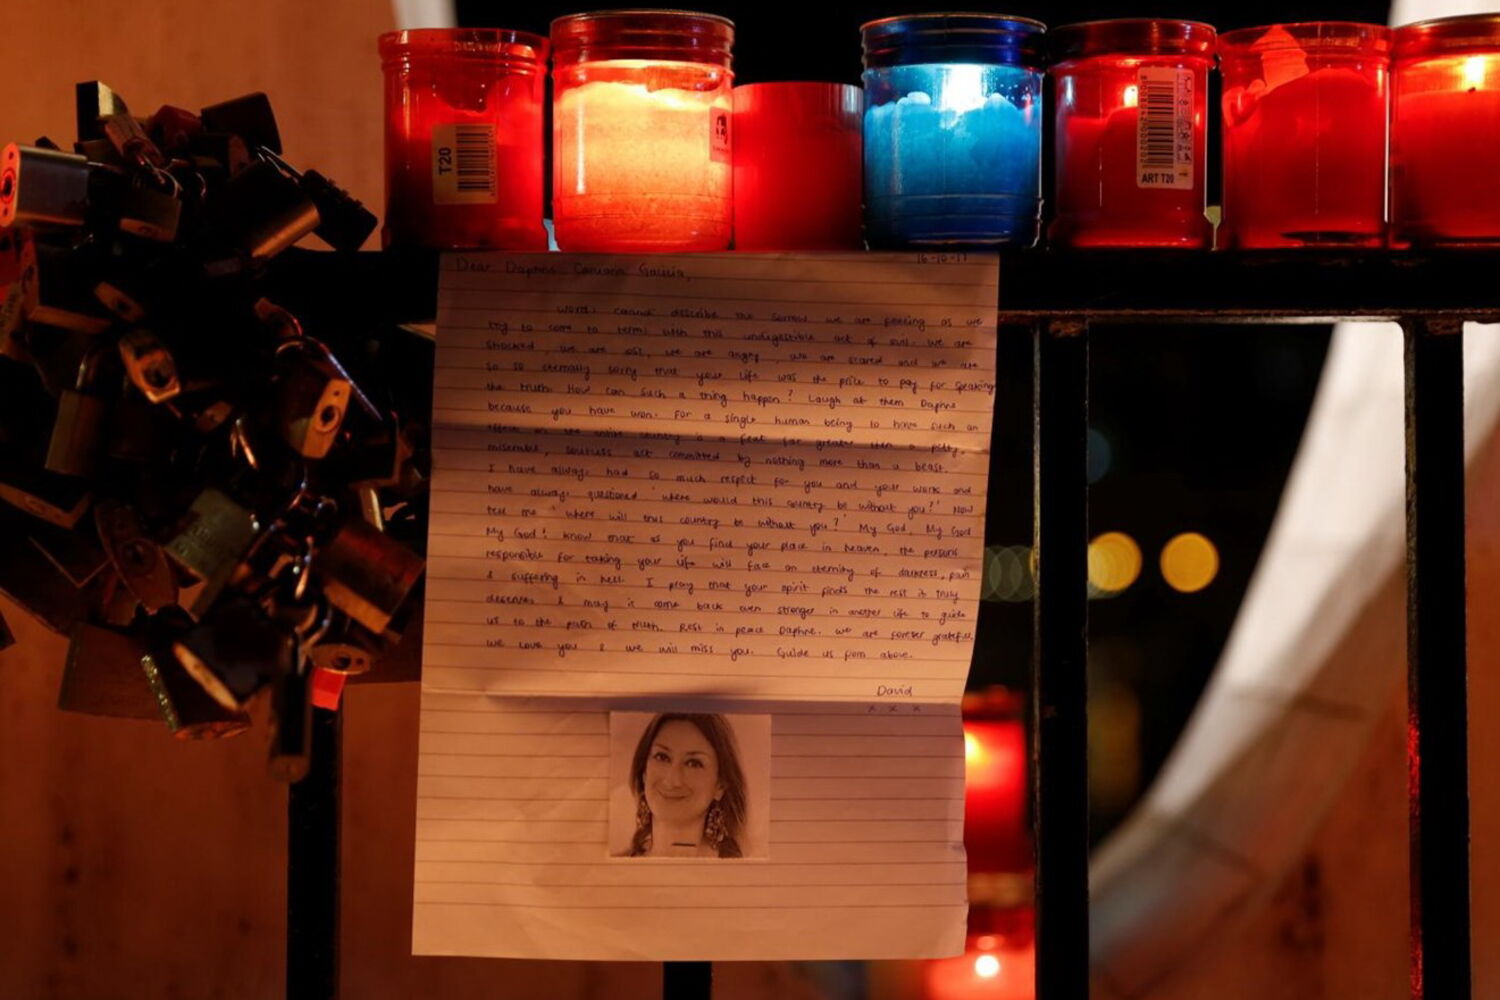 T20
ART T20
16-10-17
Dear Daphne Caruana Galizia,
Words cannot describe the sorrow we are feeling as we
try to come to terms with this undigestible act of evil. We are
shocked, we are lost, we are angry, we are scared and we are
so so eternally sorry that your life was the price to pay for speaking
the truth. How can such a thing happen? Laugh at them Daphne
because you have won. For a single human being to have such an
effect on the entire country is a feat far greater then a petty,
miserable, soulless act committed by nothing more than a beast.
I have always had so much respect for you and your work and
have always questioned 'where would this country be without you?' Now
tell me 'where will this country be without you?' My God, My God
My God! Know that as you find your place in heaven, the persons
responsible for taking your life will face an eternity of darkness, pain
& suffering in hell. I pray that your spirit finds the rest it truly
deserves & may it come back even stronger in another life to guide
us to the path of truth. Rest in peace Daphne. We are forever grateful.
We love you & we will miss you. Guide us from above.
David
x x x